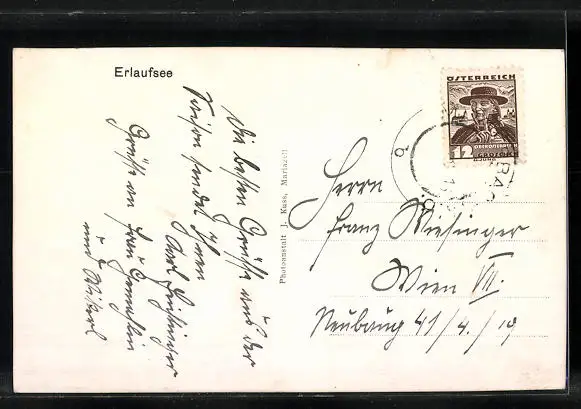 Erlaufsee
Die besten Grüsse aus der
sendet Ihnen
Karl
Grüsse an Frau Gemahlin
und
Photoanstalt J. Kuss, Mariazell
ÖSTERREICH
OBERÖSTERREICH
12 GROSCHEN
Herrn
Franz Wiesinger
Wien VII.
Neubaug 41/4./19